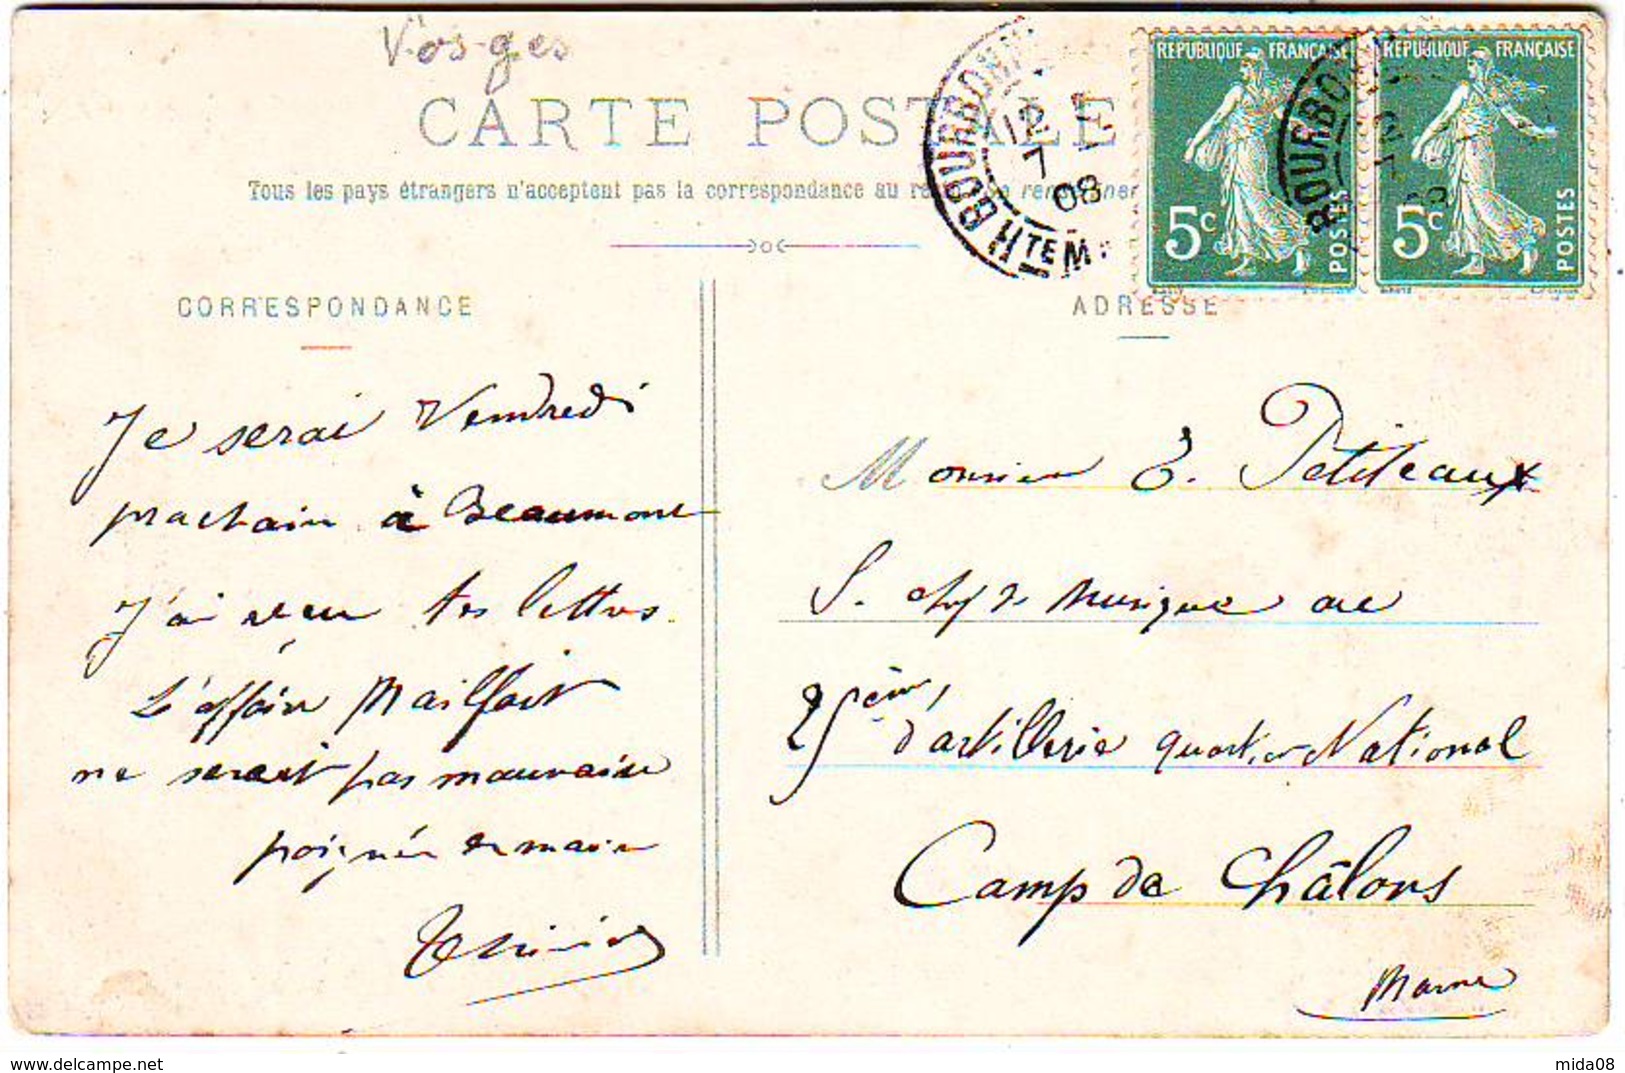 Vosges
CARTE POSTALE
Tous les pays étrangers n'acceptent pas la correspondance au
BOURBONNE
Hte M
12
7
08
REPUBLIQUE FRANÇAISE
5c
POSTES
REPUBLIQUE FRANÇAISE
5c
POSTES
BOURBON
CORRESPONDANCE
Je serai Vendredi
prochain à Beaumont
J'ai reçu tes lettres
L'affaire Mailfait
ne serait pas mauvaise
poignée de main
ADRESSE
Monsieur E. Petiteaux
S. chef de Musique au
25ème d'artillerie quartier National
Camp de Châlons
Marne
mida08